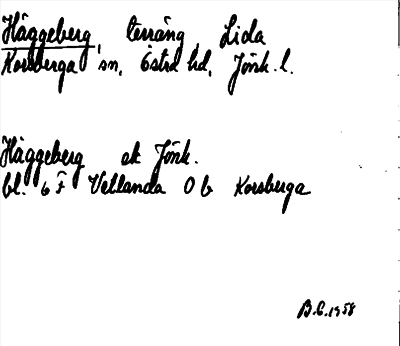 Häggeberg, terräng, Lida
Korsberga sn, Östra hd, Jönk. l.
Häggeberg ek Jönk.
bl. 6 F Vetlanda Ob Korsberga
B.G. 1958